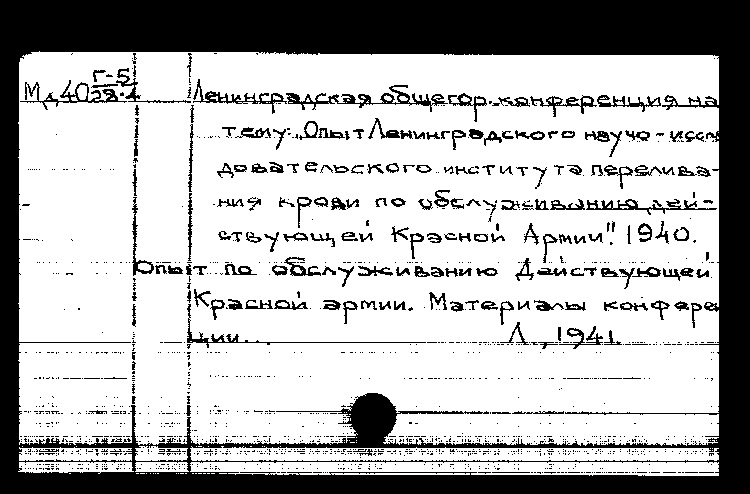 Мд40 Г-5
28.1
Ленинградская общегор. конференция на
тему: „Опыт Ленинградского научо-иссл
довательского института перелива-
ния крови по обслуживанию дей-
ствующей Красной Армии". 1940.
Опыт по обслуживанию Действующей
Красной армии. Материалы конфере
ции... Л., 1941.